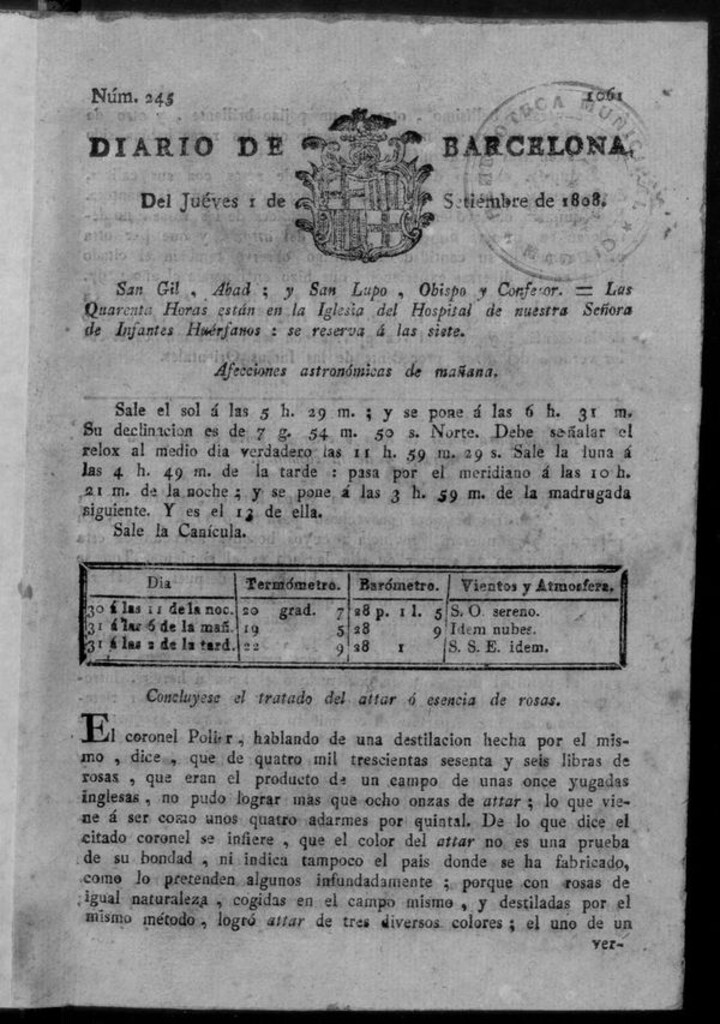 Núm. 245 1061
DIARIO DE BARCELONA,
Del Juéves 1 de Setiembre de 1808.
San Gil, Abad; y San Lupo, Obispo y Confesor. = Las
Quarenta Horas están en la Iglesia del Hospital de nuestra Señora
de Infantes Huérfanos: se reserva á las siete.
Afecciones astronómicas de mañana.
Sale el sol á las 5 h. 29 m.; y se pone á las 6 h. 31 m.
Su declinacion es de 7 g. 54 m. 50 s. Norte. Debe señalar el
relox al medio dia verdadero las 11 h. 59 m. 29 s. Sale la luna á
las 4 h. 49 m. de la tarde: pasa por el meridiano á las 10 h.
21 m. de la noche; y se pone á las 3 h. 59 m. de la madrugada
siguiente. Y es el 13 de ella.
Sale la Canícula.
Dia Termómetro. Barómetro. Vientos y Atmosfera.
30 á las 11 de la noc. 20 grad. 7 28 p. 1 l. 5 S. O. sereno.
31 á las 6 de la mañ. 19 5 28 9 Idem nubes.
31 á las 2 de la tard. 22 9 28 1 S. S. E. idem.
Concluyese el tratado del attar ó esencia de rosas.
El coronel Polier, hablando de una destilacion hecha por el mis-
mo, dice, que de quatro mil trescientas sesenta y seis libras de
rosas, que eran el producto de un campo de unas once yugadas
inglesas, no pudo lograr mas que ocho onzas de attar; lo que vie-
ne á ser como unos quatro adarmes por quintal. De lo que dice el
citado coronel se infiere, que el color del attar no es una prueba
de su bondad, ni indica tampoco el pais donde se ha fabricado,
como lo pretenden algunos infundadamente; porque con rosas de
igual naturaleza, cogidas en el campo mismo, y destiladas por el
mismo método, logró attar de tres diversos colores; el uno de un
ver-